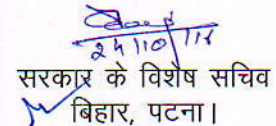 24/10/18
सरकार के विशेष सचिव
बिहार, पटना।